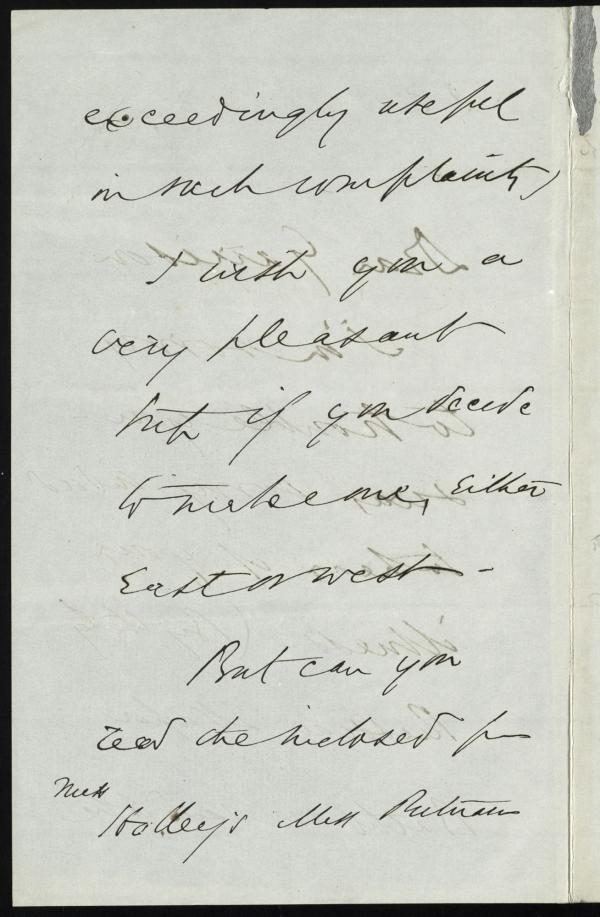 exceedingly useful
in such complaints)
I wish you a
very pleasant
trip if you decide
to make one, Either
East or West -
But can you
read the inclosed for
Miss
Holley's Miss Putnam